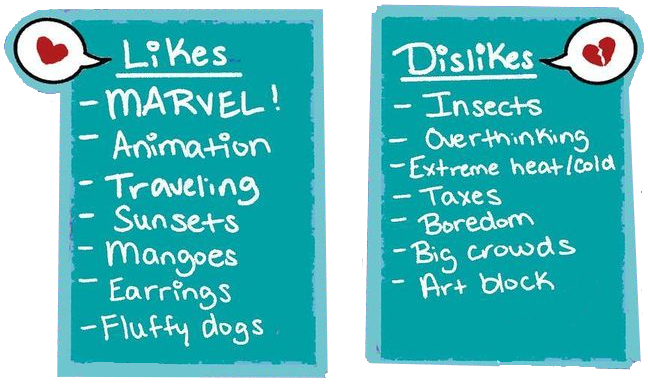 Likes
- MARVEL!
- Animation
- Traveling
- Sunsets
- Mangoes
- Earrings
- Fluffy dogs
Dislikes
- Insects
- Overthinking
- Extreme heat/cold
- Taxes
- Boredom
- Big crowds
- Art block